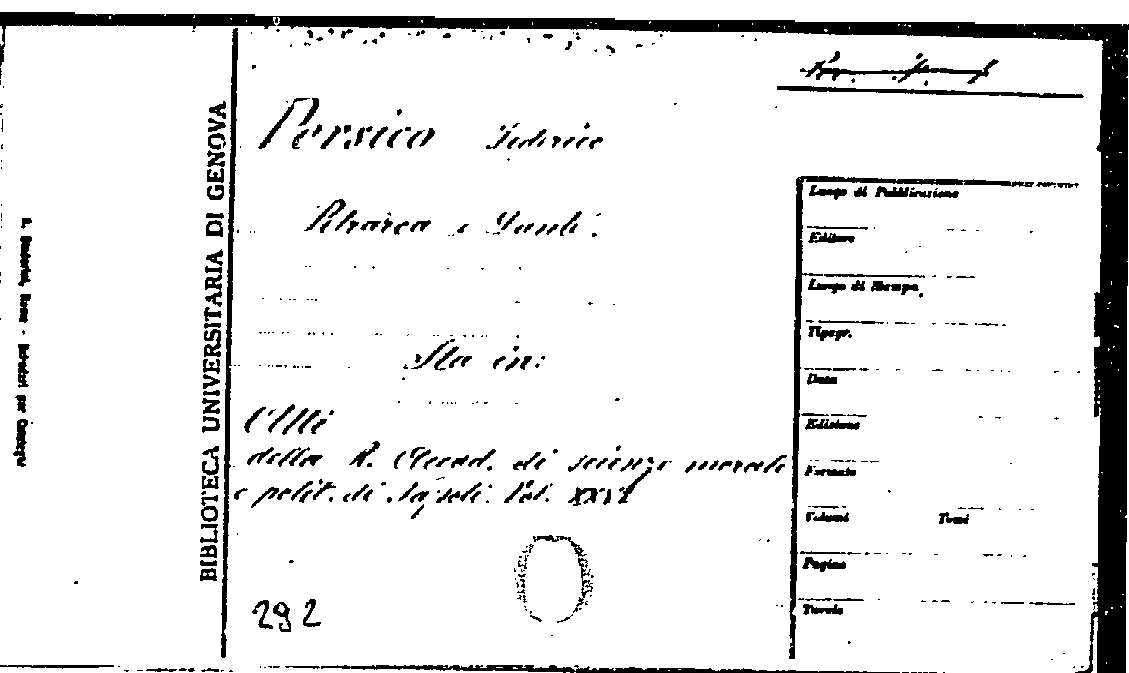 BIBLIOTECA UNIVERSITARIA DI GENOVA
Persico Federico
Petrarca e Dante.
Sta in:
Atti
della R. Accad. di scienze morali
e polit. di Napoli. Vol. XXVI
292
Luogo di Pubblicazione
Editore
Luogo di Stampa
Tipogr.
Data
Edizione
Formato
Volumi Tomi
Pagine
Tavole